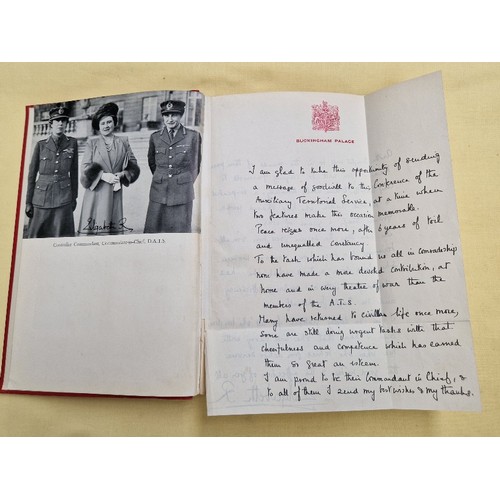 Elizabeth R
BUCKINGHAM PALACE
I am glad to take this opportunity of sending
a message of goodwill to this Conference of the
Auxiliary Territorial Service, at a time when
two features make this occasion memorable.
Peace reigns once more, after 6 years of toil
and unequalled constancy.
To the task which has bound us all in comradeship
none have made a more devoted contribution, at
home and in every theatre of war than the
members of the A.T.S.
Many have returned to civilian life once more,
some are still doing urgent tasks with that
cheerfulness and competence which has earned
them so great an esteem.
I am proud to be their Commandant in Chief, &
to all of them I send my best wishes & my thanks.